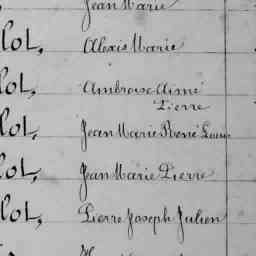 Jean Marie
lot, Alexis Marie
lot, Ambroise Aimé
Pierre
lot, Jean Marie René Louis
lot, Jean Marie Pierre
lot, Pierre Joseph Julien